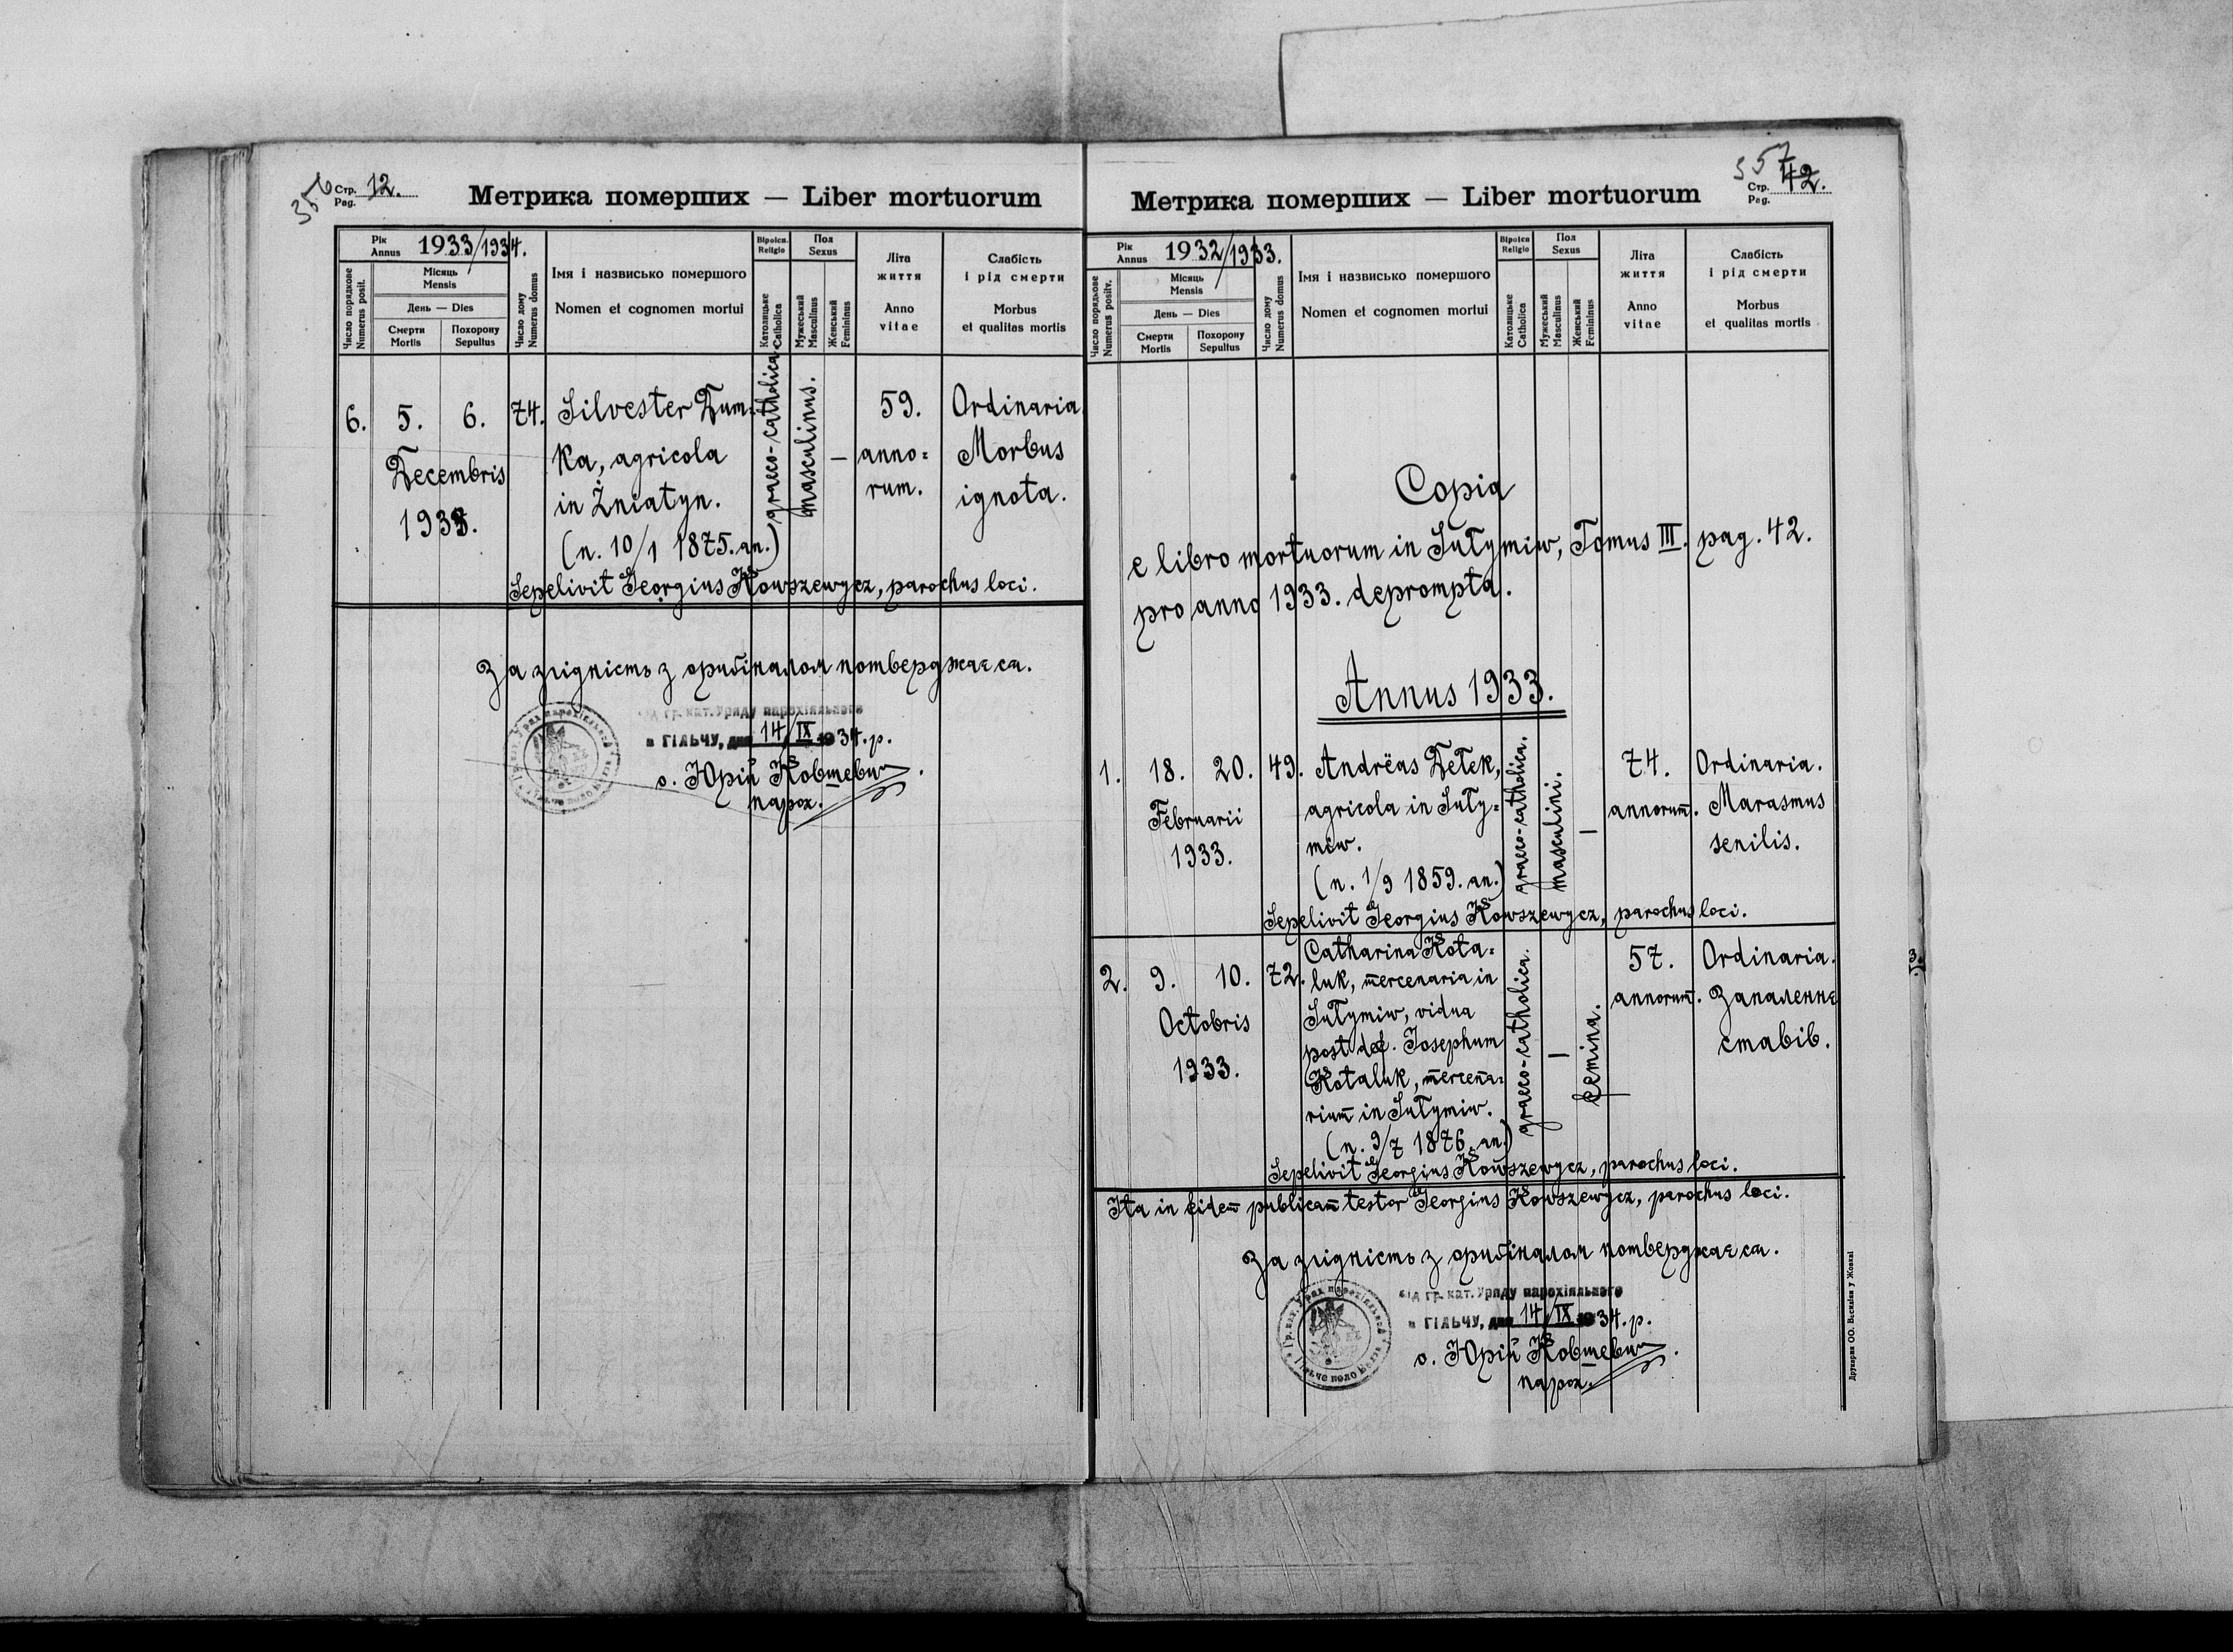 356
Стр. 12.
Pag.
Метрика померших — Liber mortuorum
Рік
Annus 1933/1934.
Місяць
Mensis
День — Dies
Число порядкове
Numerus posit.
Смерти
Mortis
Похорону
Sepultus
Число дому
Numerus domus
Імя і назвисько помершого
Nomen et cognomen mortui
Віроісп.
Religio
Католицьке
Catholica
Пол
Sexus
Мужеський
Masculinus
Женський
Femininus
Літа
життя
Anno
vitae
Слабість
і рід смерти
Morbus
et qualitas mortis
6. 5. 6. 74. Silvester Dum= graeco-catholica. masculinus. — 59. Ordinaria.
Decembris ka, agricola anno= Morbus
1933. in Żniatyn. rum. ignota.
(n. 10/1 1875. an.)
Sepelivit Georgius Kowszewycz, parochus loci.
За згідність з ориґіналом потверджаєся.
Від гр. кат. Уряду парохіяльного
в ГІЛЬЧУ, дня 14/IX 1934. р.
о. Юрій Ковшевич
парох.
357
Стр. 42.
Pag.
Метрика померших — Liber mortuorum
Рік
Annus 1932/1933.
Місяць
Mensis
День — Dies
Число порядкове
Numerus positv.
Смерти
Mortis
Похорону
Sepultus
Число дому
Numerus domus
Імя і назвисько помершого
Nomen et cognomen mortui
Віроісп
Religio
Католицьке
Catholica
Пол
Sexus
Мужеський
Masculinus
Женський
Femininus
Літа
життя
Anno
vitae
Слабість
і рід смерти
Morbus
et qualitas mortis
Copia
e libro mortuorum in Sułymiw, Tomus III. pag. 42.
pro anno 1933. deprompta.
Annus 1933.
1. 18. 20. 49. Andrëas Detek, graeco-catholica. masculini. — 74. Ordinaria.
Februarii agricola in Suły= annorum̄. Marasmus
1933. mow. senilis.
(n. 1/9 1859. an.)
Sepelivit Georgius Kowszewycz, parochus loci.
2. 9. 10. 72. Catharina Kota= graeco-catholica. — femina. 57. Ordinaria.
Octobris luk, mercenaria in annorum̄. Запаленнє
1933. Sułymiw, vidua ставів.
post def. Josephum
Kotaluk, mercena=
rium̄ in Sułymiw.
(n. 9/7 1876. an.)
Sepelivit Georgius Kowszewycz, parochus loci.
Ita in fidem̄ publicam̄ testor Georgius Kowszewycz, parochus loci.
За згідність з ориґіналом потверджаєся.
Від гр. кат. Уряду парохіяльного
в ГІЛЬЧУ, дня 14/IX 1934. р.
о. Юрій Ковшевич
парох.
Друкарня ОО. Василіян у Жовкві